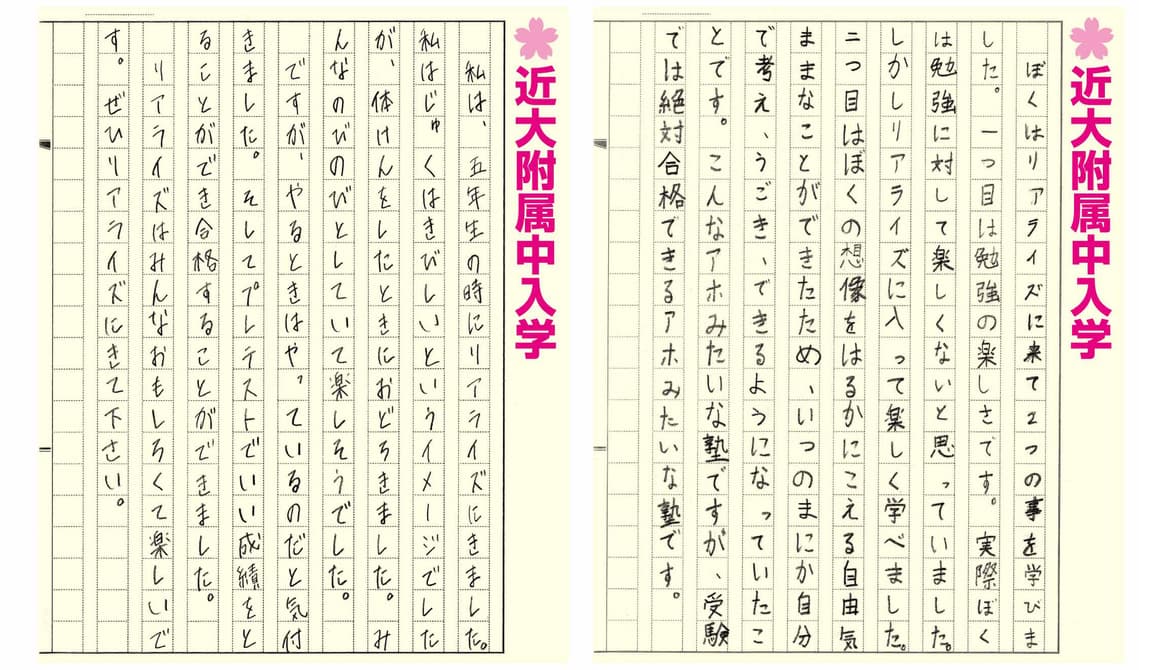 近大附属中入学
ぼくはリアライズに来て2つの事を学びま
した。一つ目は勉強の楽しさです。実際ぼく
は勉強に対して楽しくないと思っていました。
しかしリアライズに入って楽しく学べました。
二つ目はぼくの想像をはるかにこえる自由気
ままなことができたため、いつのまにか自分
で考え、うごき、できるようになっていたこ
とです。こんなアホみたいな塾ですが、受験
では絶対合格できるアホみたいな塾です。
近大附属中入学
私は、五年生の時にリアライズにきました。
私はじゅくはきびしいというイメージでした
が、体けんをしたときにおどろきました。み
んなのびのびとしていて楽しそうでした。
ですが、やるときはやっているのだと気付
きました。そしてプレテストでいい成績をと
ることができ合格することができました。
リアライズはみんなおもしろくて楽しいで
す。ぜひリアライズにきて下さい。